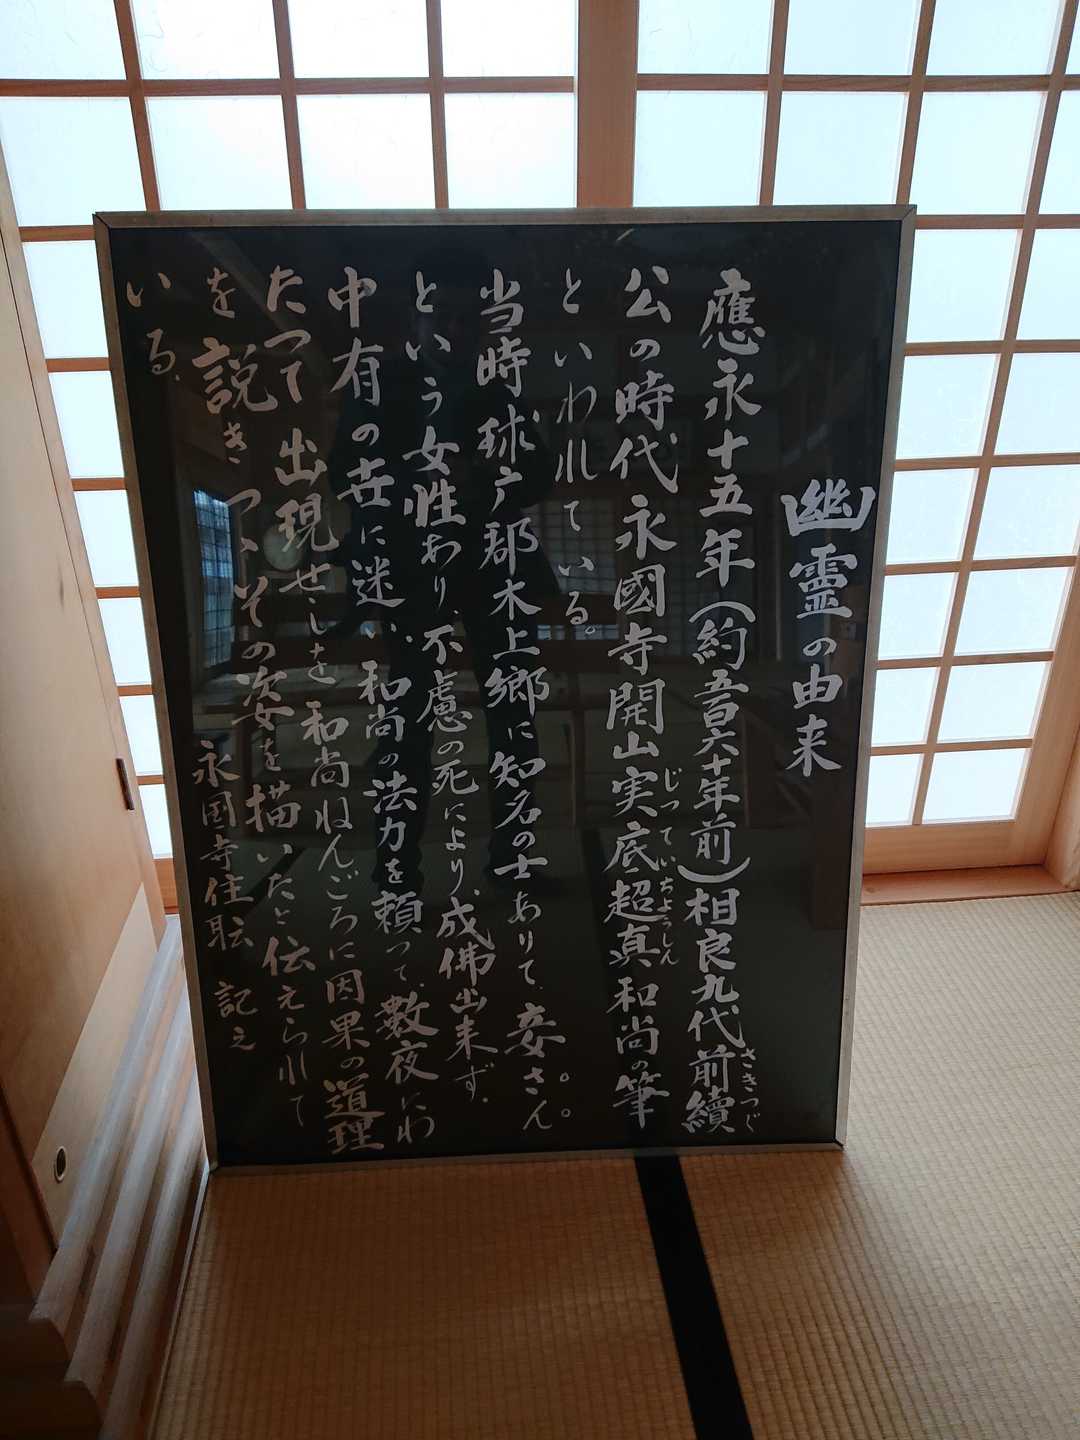 幽霊の由来
應永十五年(約五百六十年前)相良九代前續
さきつぐ
公の時代永國寺開山実底超真和尚の筆
じっていちょうしん
といわれている。
当時球户郡木上郷に知名の士ありて、妾さん。。
という女性あり、不慮の死により、成佛出来ず、
中有の世に迷い、和尚の法力を頼って、數夜にわ
たって出現せしを和尚ねんごろに因果の道理
を説きつゝその姿を描いたと伝えられて
いる。
永国寺住職 記之